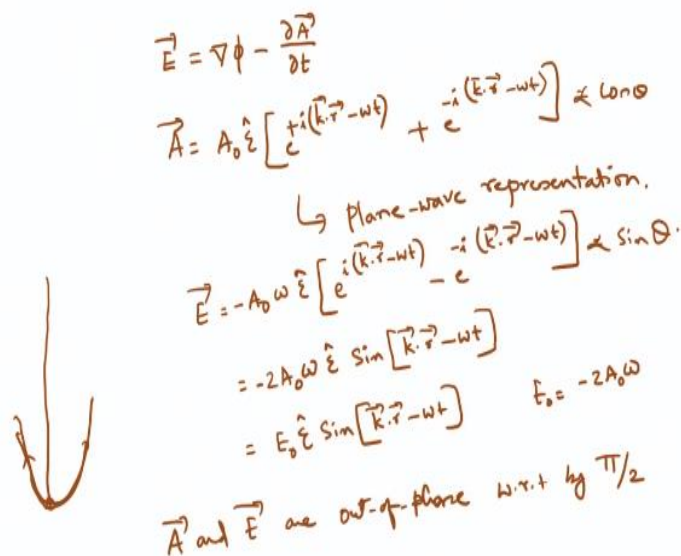 E⃗ = ∇ϕ - ∂A⃗/∂t
A⃗ = A₀ ε̂ [e^{+i(k⃗.r⃗-wt)} + e^{-i(k⃗.r⃗-wt)}] ∝ cosθ
↳ Plane-wave representation.
E⃗ = -A₀ ω ε̂ [e^{i(k⃗.r⃗-wt)} - e^{-i(k⃗.r⃗-wt)}] ∝ Sin θ.
= -2A₀ω ε̂ Sin[k⃗.r⃗-wt]
= E₀ ε̂ Sin[k⃗.r⃗-wt] E₀ = -2A₀ω
A⃗ and E⃗ are out-of-phase w.r.t by π/2